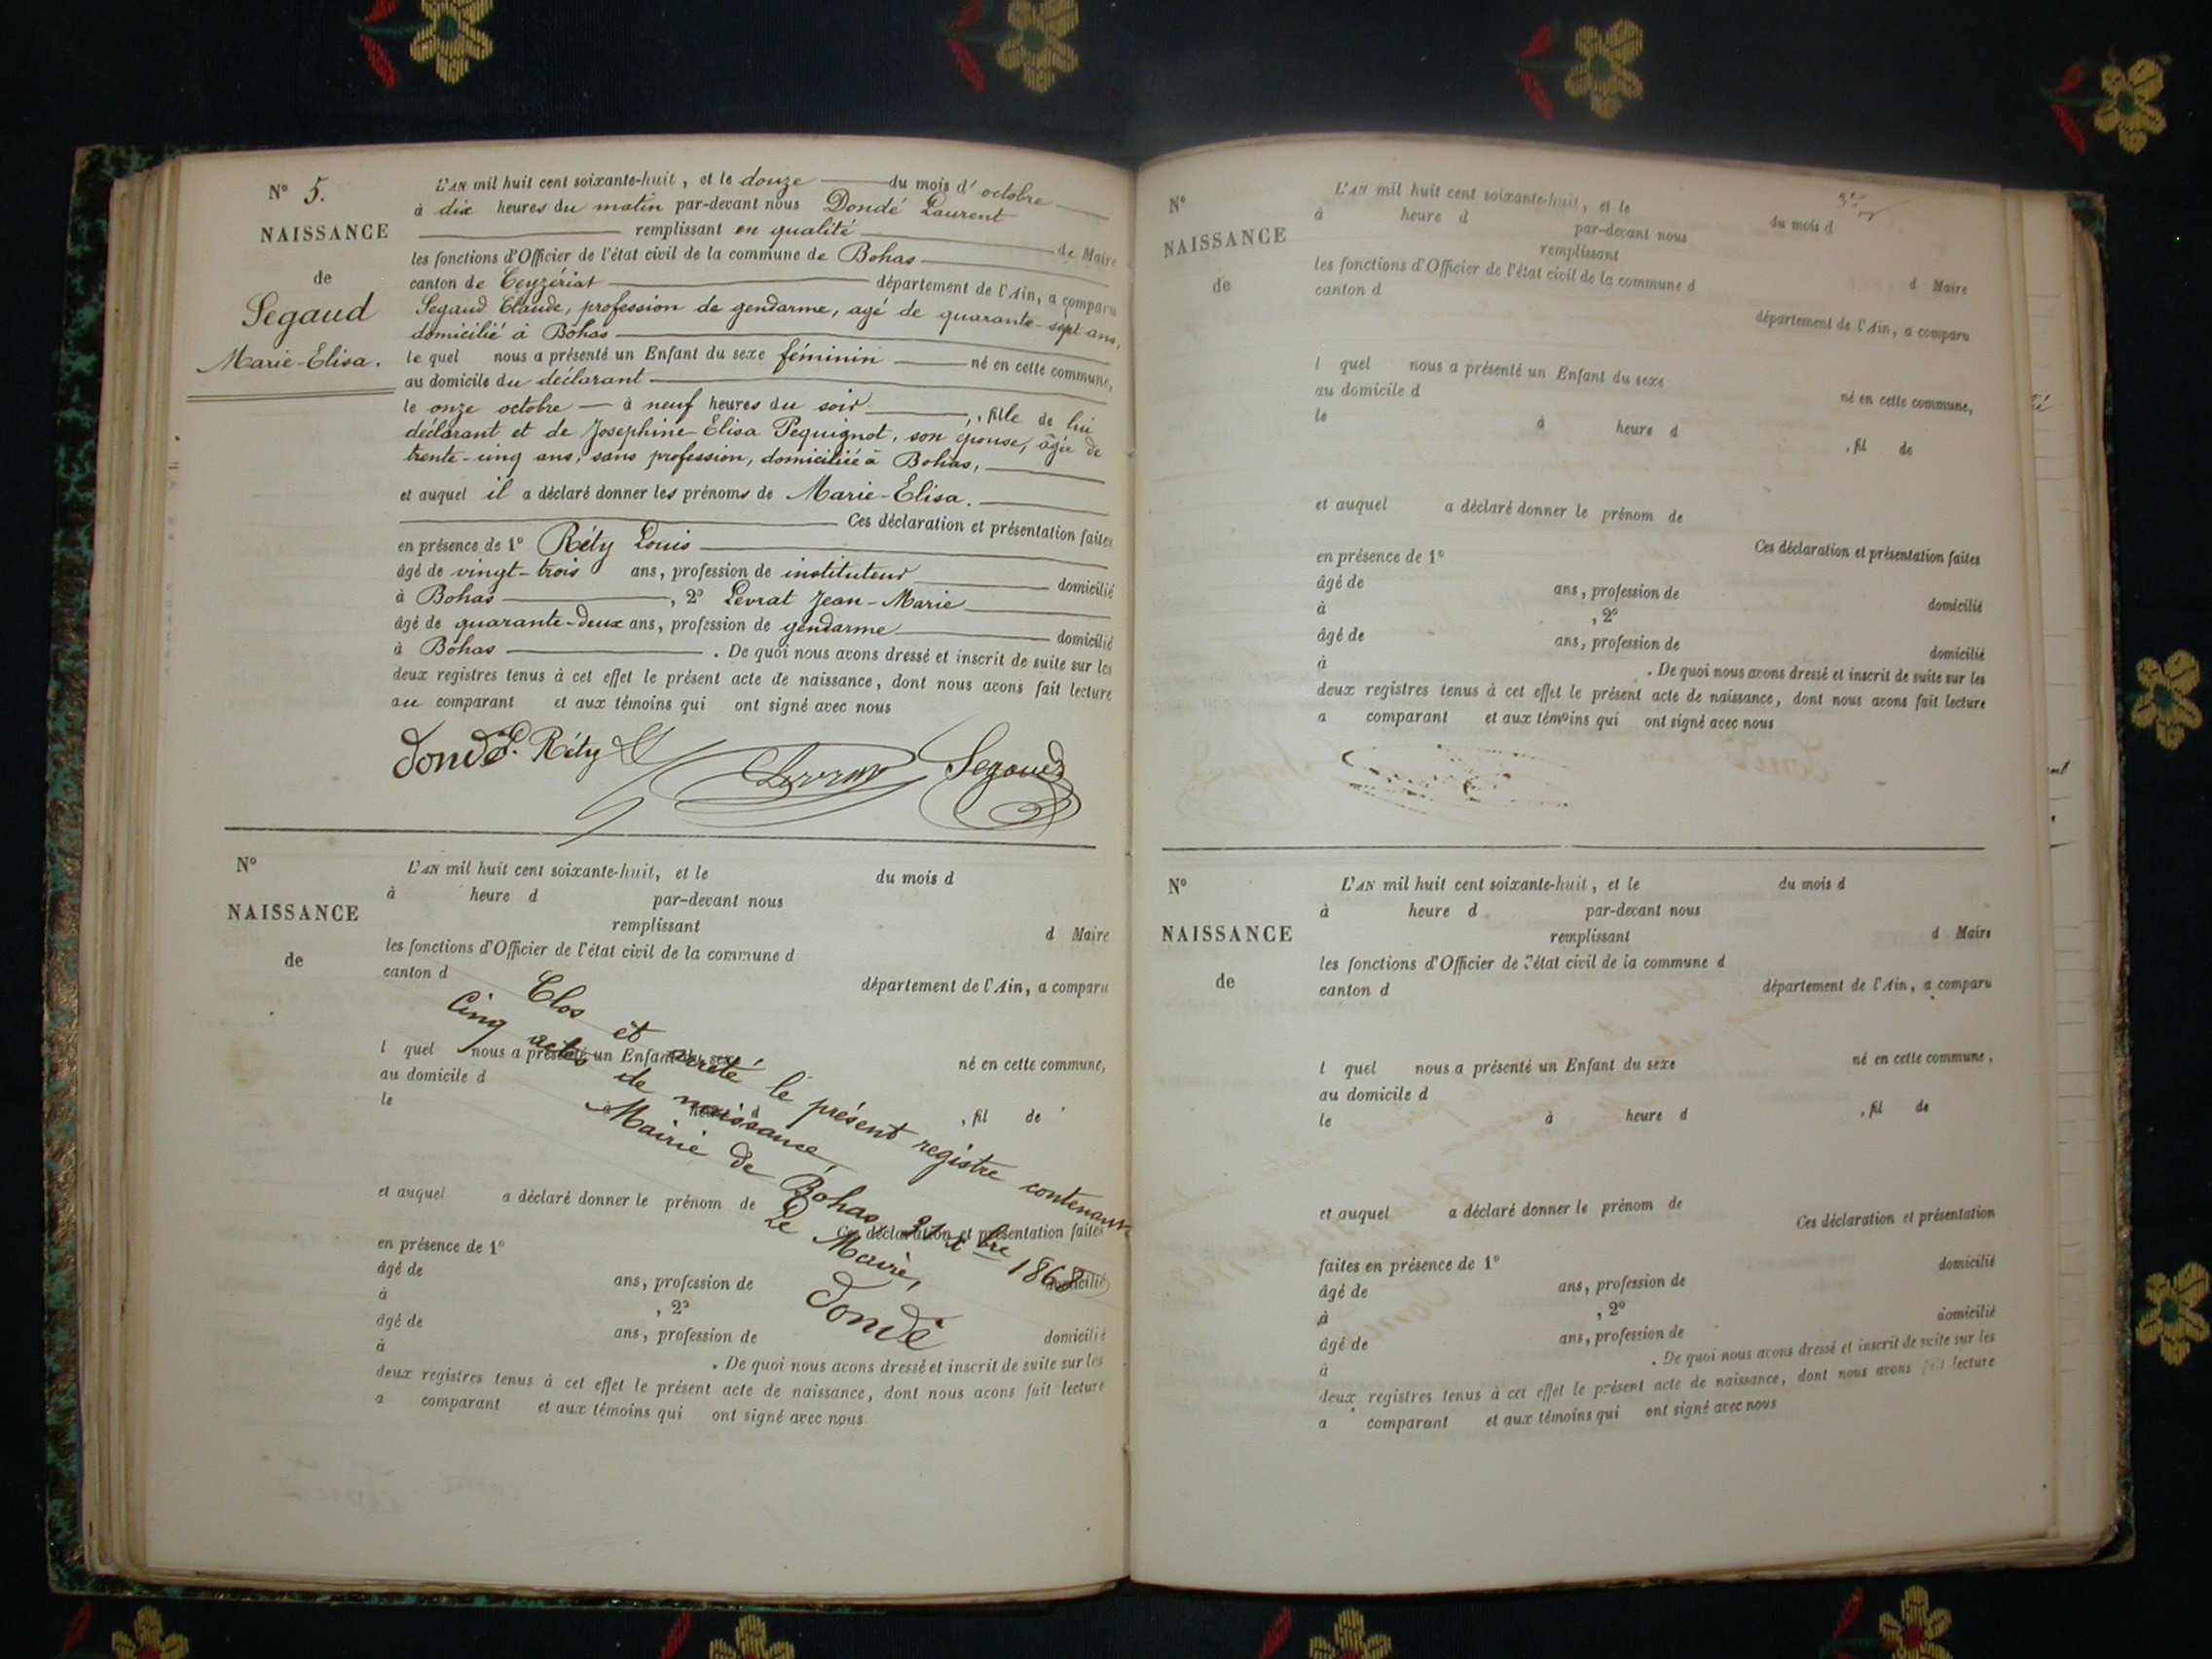 N° 5.
NAISSANCE
de
Segaud
Marie-Elisa.
L'AN mil huit cent soixante-huit, et le douze du mois d'octobre
à dix heures du matin par-devant nous Dondé Laurent
remplissant en qualité de Maire
les fonctions d'Officier de l'état civil de la commune de Bohas
canton de Ceyzériat département de l'Ain, a comparu
Segaud Claude, profession de gendarme, agé de quarante-sept ans,
domicilié à Bohas
le quel nous a présenté un Enfant du sexe féminin né en cette commune,
au domicile du déclarant
le onze octobre à neuf heures du soir, fille de lui
déclarant et de Josephine Elisa Pequignot, son épouse, âgée de
trente-cinq ans, sans profession, domiciliée à Bohas,
et auquel il a déclaré donner les prénoms de Marie-Elisa.
Ces déclaration et présentation faites
en présence de 1° Réty Louis
âgé de vingt-trois ans, profession de instituteur domicilié
à Bohas, 2° Levrat Jean-Marie
âgé de quarante-deux ans, profession de gendarme domicilié
à Bohas. De quoi nous avons dressé et inscrit de suite sur les
deux registres tenus à cet effet le présent acte de naissance, dont nous avons fait lecture
au comparant et aux témoins qui ont signé avec nous
Dondé L. Réty Levrat Segaud
N°
NAISSANCE
de
L'AN mil huit cent soixante-huit, et le du mois d
à heure d par-devant nous
remplissant d Maire
les fonctions d'Officier de l'état civil de la commune d
canton d département de l'Ain, a comparu
l quel nous a présenté un Enfant du sexe né en cette commune,
au domicile d
le à heure d , fil de
et auquel a déclaré donner le prénom de
Ces déclaration et présentation faites
en présence de 1°
âgé de ans, profession de domicilié
à , 2°
âgé de ans, profession de domicilié
à . De quoi nous avons dressé et inscrit de suite sur les
deux registres tenus à cet effet le présent acte de naissance, dont nous avons fait lecture
a comparant et aux témoins qui ont signé avec nous
Clos et arrêté le présent registre contenant
Cinq actes de naissance,
Mairie de Bohas, 31 Xbre 1868
Le Maire,
Dondé
N°
NAISSANCE
de
L'AN mil huit cent soixante-huit, et le du mois d
à heure d par-devant nous
remplissant d Maire
les fonctions d'Officier de l'état civil de la commune d
canton d département de l'Ain, a comparu
l quel nous a présenté un Enfant du sexe né en cette commune,
au domicile d
le à heure d , fil de
et auquel a déclaré donner le prénom de
Ces déclaration et présentation faites
en présence de 1°
âgé de ans, profession de domicilié
à , 2°
âgé de ans, profession de domicilié
à . De quoi nous avons dressé et inscrit de suite sur les
deux registres tenus à cet effet le présent acte de naissance, dont nous avons fait lecture
a comparant et aux témoins qui ont signé avec nous
N°
NAISSANCE
de
L'AN mil huit cent soixante-huit, et le du mois d
à heure d par-devant nous
remplissant d Maire
les fonctions d'Officier de l'état civil de la commune d
canton d département de l'Ain, a comparu
l quel nous a présenté un Enfant du sexe né en cette commune,
au domicile d
le à heure d , fil de
et auquel a déclaré donner le prénom de
Ces déclaration et présentation
faites en présence de 1° domicilié
âgé de ans, profession de
à , 2° domicilié
âgé de ans, profession de
à . De quoi nous avons dressé et inscrit de suite sur les
deux registres tenus à cet effet le présent acte de naissance, dont nous avons fait lecture
a comparant et aux témoins qui ont signé avec nous